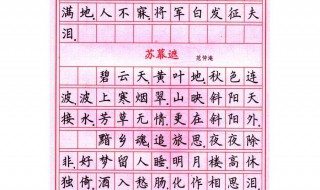 满地。人不寐，将军白发征夫
泪。
苏幕遮 范仲淹
碧云天，黄叶地，秋色连
波，波上寒烟翠。山映斜阳天
接水，芳草无情，更在斜阳外
黯乡魂，追旅思，夜夜除
非，好梦留人睡。明月楼高休
独倚，酒入愁肠，化作相思泪